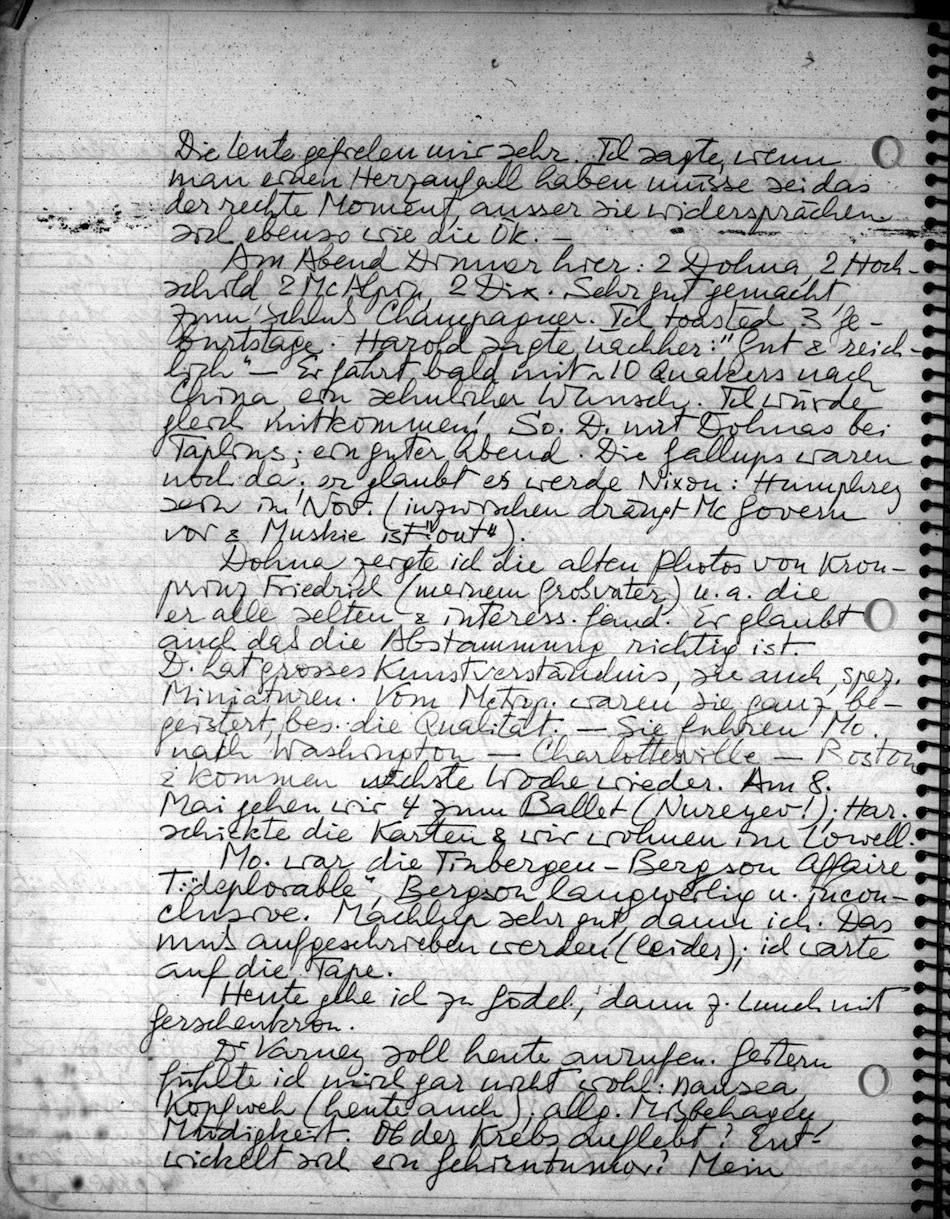 Die Leute gefielen mir sehr. Ich sagte, wenn
man einen Herzanfall haben müsse sei das
der rechte Moment, ausser sie widersprächen
sich ebenso wie die Ök. —
Am Abend Dinner hier: 2 Dohna, 2 Hoch-
schild 2 McAlpin, 2 Dix. Sehr gut gemacht
zum Schluß Champagner. Ich toasted 3 Ge-
burtstage. Harold sagte nachher: "Gut & reich-
lich" — Er fährt bald mit ~10 Quakers nach
China, ein sehnlicher Wunsch. Ich würde
gleich mitkommen! So. D. mit Dohnas bei
Taplins; ein guter Abend. Die Gallups waren
noch da; er glaubt es werde Nixon: Humphrey
sein in Nov. (inzwischen drängt McGovern
vor & Muskie ist "out").
Dohna zeigte ich die alten Photos von Kron-
prinz Friedrich (meinem Grosvater) u. a. die
er alle selten & interess. fand. Er glaubt
auch daß die Abstammung richtig ist.
D. hat grosses Kunstverständnis, sie auch, spez.
Miniaturen. Vom Metrop. waren sie ganz be-
geistert, bes. die Qualität. — Sie fuhren Mo.
nach Washington — Charlottesville — Boston
& kommen nächste Woche wieder. Am 8.
Mai gehen wir 4 zum Ballet (Nureyev!); Har.
schickte die Karten & wir wohnen im Lowell.
Mo. war die Tinbergen-Bergson Affaire
T: "deplorable", Bergson langweilig u. incon-
clusive. Machlup sehr gut, dann ich. Das
muß aufgeschrieben werden (leider); ich warte
auf die Tape.
Heute gehe ich zu Gödel, dann z. Lunch mit
Gerschenkron.
Dr Varney soll heute anrufen. Gestern
fühlte ich mich gar nicht wohl: nausea,
Kopfweh (heute auch), allg. Misbehagen,
Müdigkeit. Ob der Krebs auflebt? Ent-
wickelt sich ein Gehirntumor? Mein